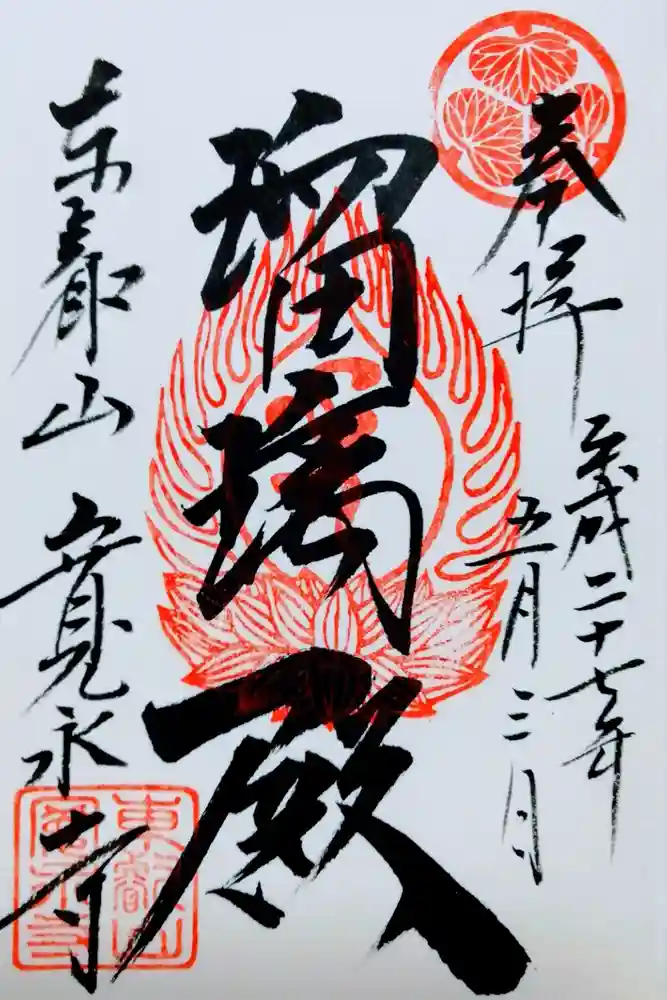 奉拝
平成二十七年
五月三日
瑠璃殿
東叡山
寛永寺
東叡山
寛永寺